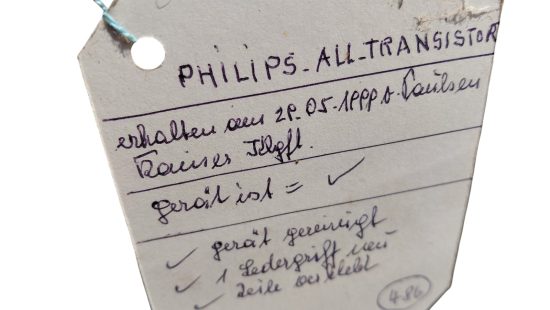 PHILIPS-ALL-TRANSISTOR
erhalten am 29.05.1999 v. Paulsen
gerät ist = ✓
✓ gerät gereinigt
✓ 1 Ledergriff neu
✓ Teile verklebt
486